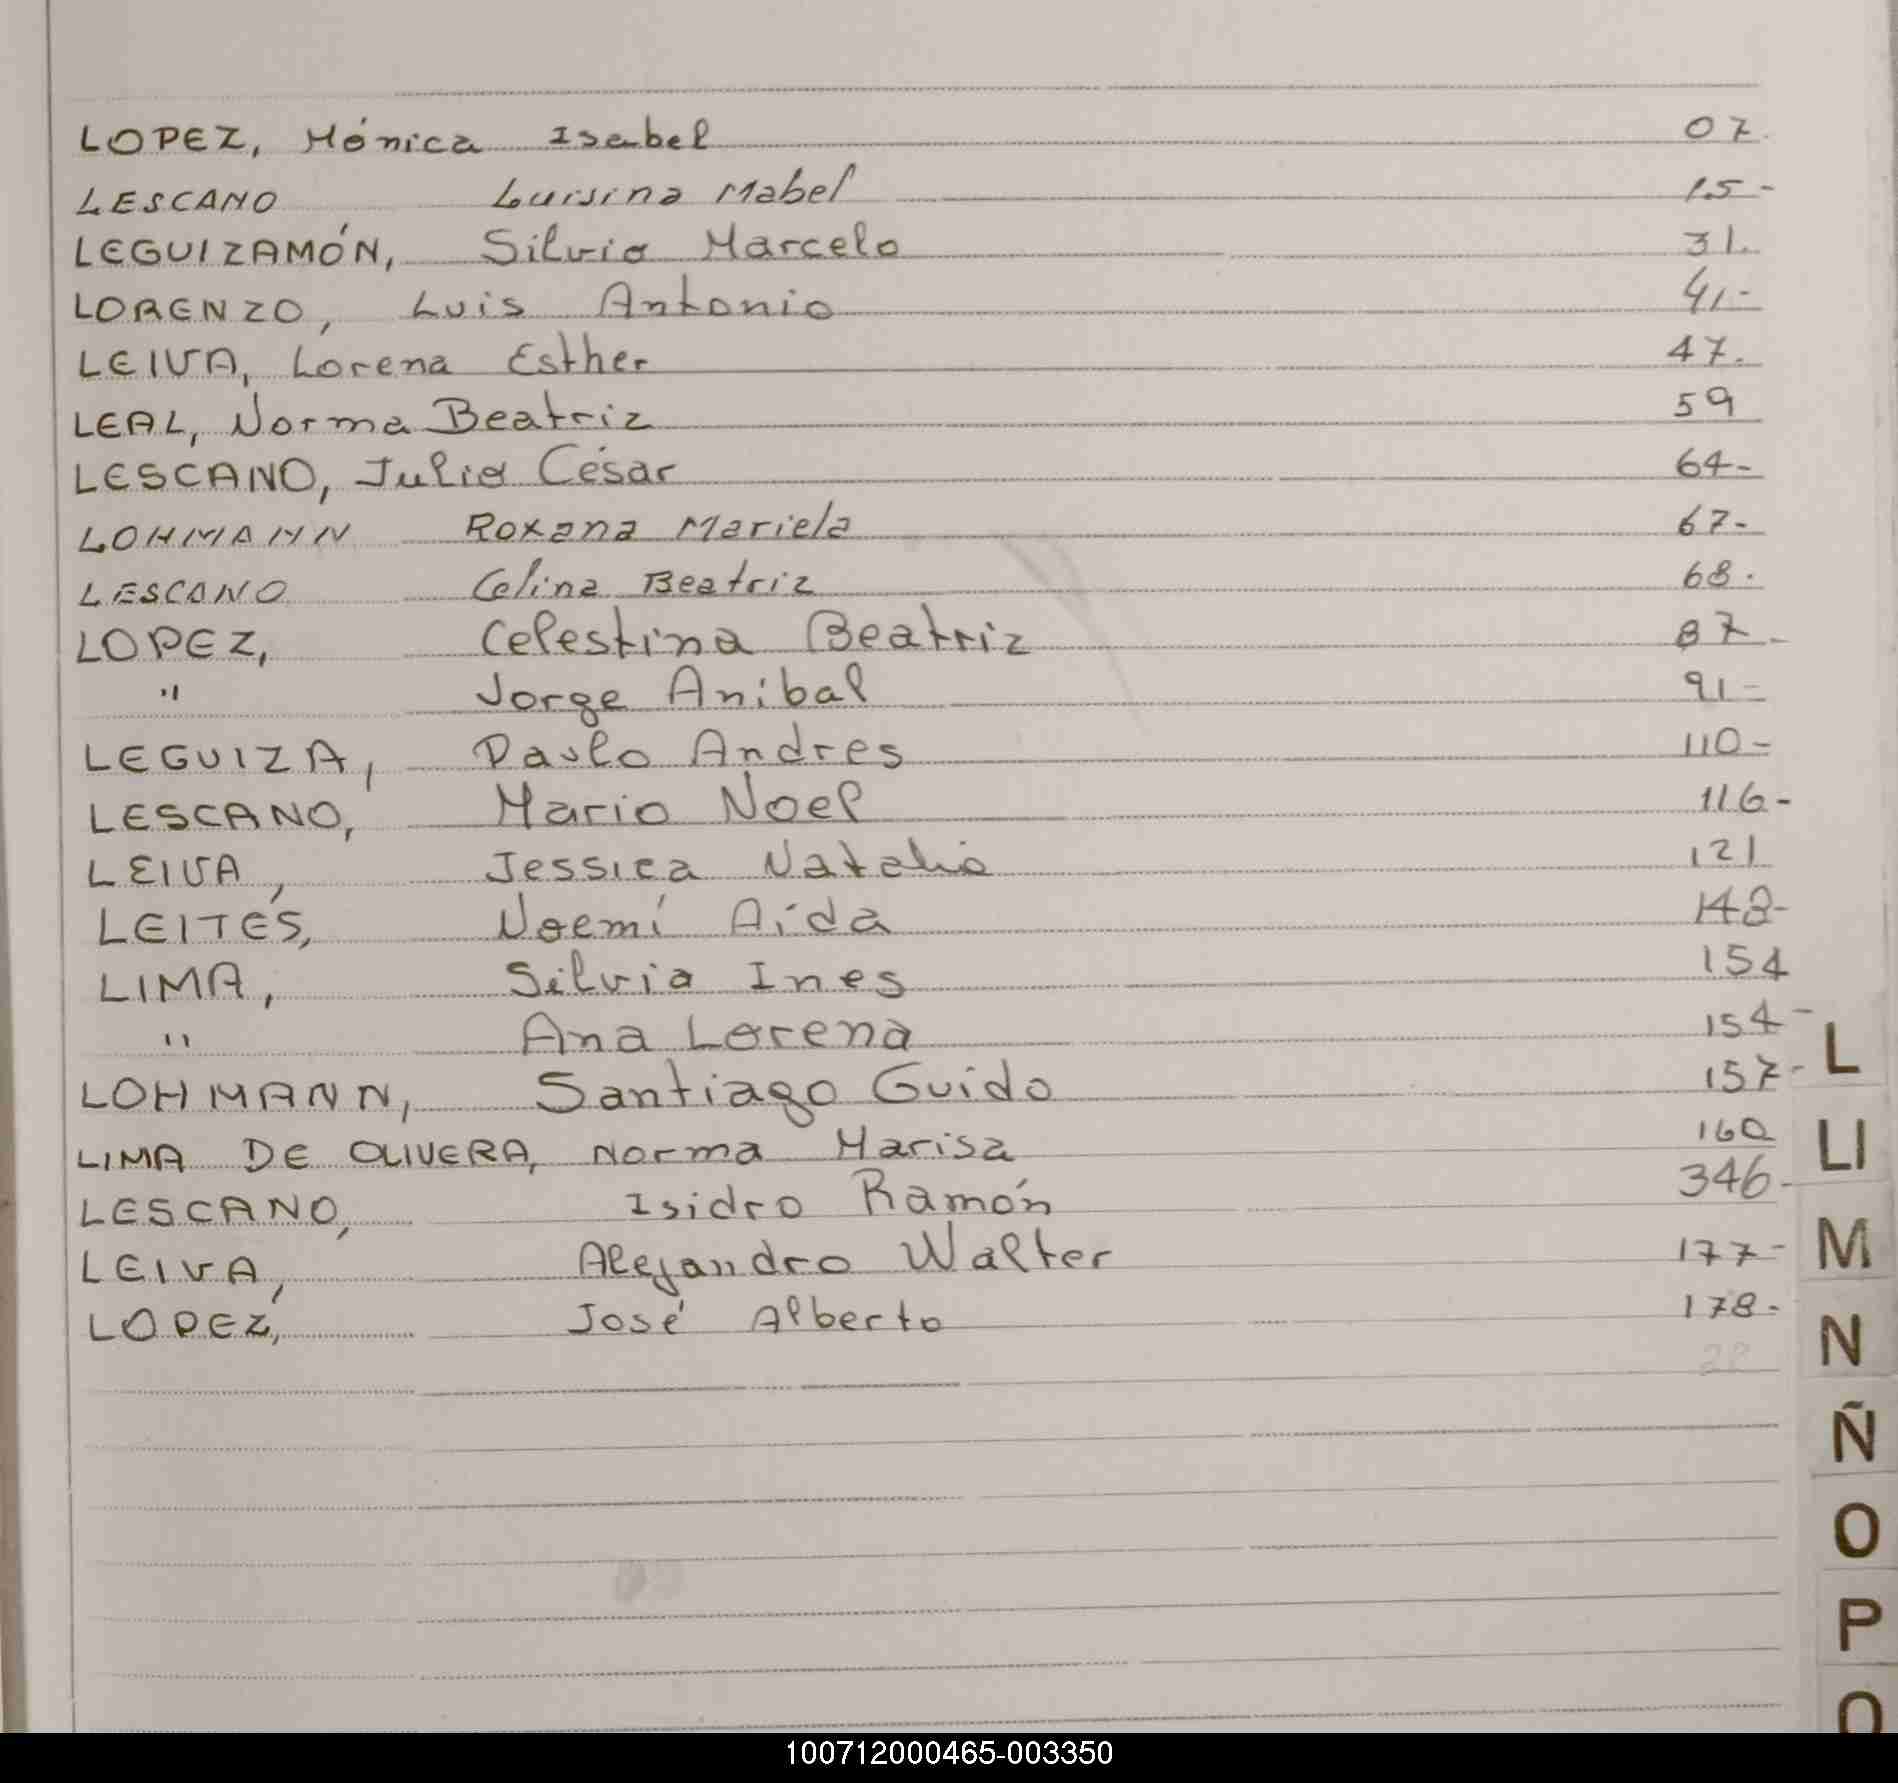 LOPEZ, Mónica Isabel 07.
LESCANO Luisina Mabel 15-
LEGUIZAMÓN, Silvio Marcelo 31.
LORENZO, Luis Antonio 41-
LEIVA, Lorena Esther 47.
LEAL, Norma Beatriz 59
LESCANO, Julio César 64-
LOHMANN Roxana Mariela 67-
LESCANO Celina Beatriz 68.
LOPEZ, Celestina Beatriz 87-
" Jorge Anibal 91-
LEGUIZA, Paulo Andres 110-
LESCANO, Mario Noel 116-
LEIVA, Jessica Natalia 121
LEITES, Noemí Aída 148-
LIMA, Silvia Ines 154
" Ana Lorena 154-
LOHMANN, Santiago Guido 157-
LIMA DE OLIVERA, Norma Marisa 160
LESCANO, Isidro Ramón 346-
LEIVA, Alejandro Walter 177-
LOPEZ, José Alberto 178-
L
LI
M
N
Ñ
O
P
100712000465-003350